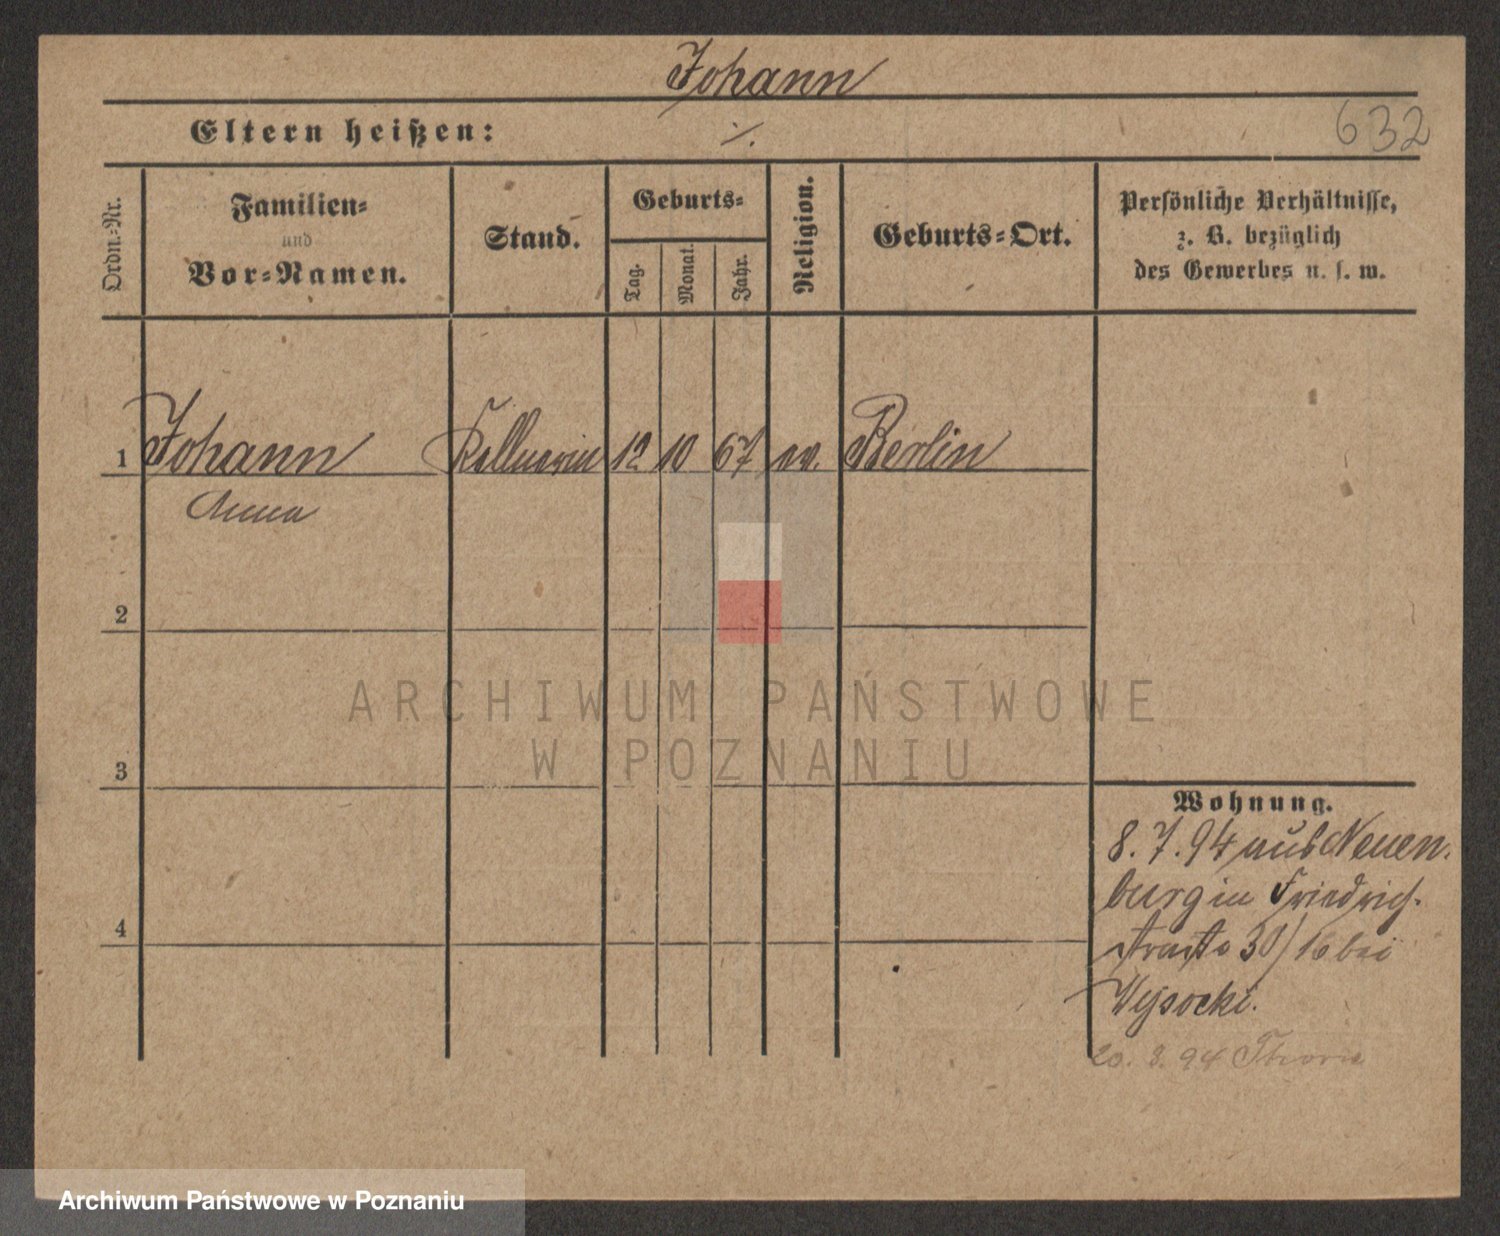 Johann
Eltern heißen: ./.
632
Ordn.-Nr.
Familien-
und
Vor-Namen.
Stand.
Geburts-
Tag.
Monat.
Jahr.
Religion.
Geburts-Ort.
Persönliche Verhältnisse,
z. B. bezüglich
des Gewerbes u. s. w.
1 Johann Kellnerin 12 10 67 ev. Berlin
Anna
2
3
4
Wohnung.
8. 7. 94 aus Neuen-
burg in Friedrich-
straße 30/ bei
Wysocki.
20. 8. 94 Thorn
ARCHIWUM PAŃSTWOWE
W POZNANIU
Archiwum Państwowe w Poznaniu